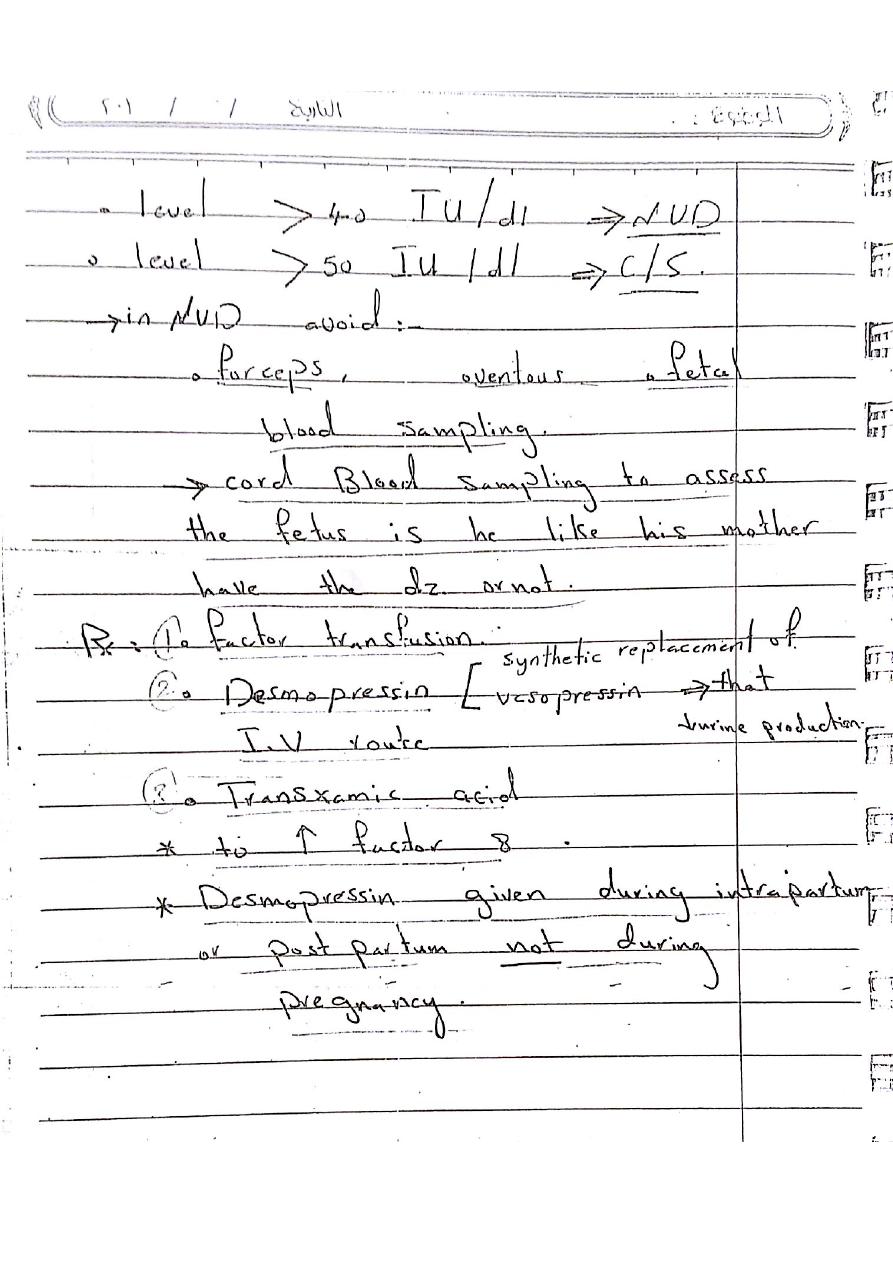 الموضوع : التاريخ / / ٢٠١
• level > 40 IU/dl ⇒ NVD
• level > 50 IU/dl ⇒ C/S.
→ in NVD avoid :-
• forceps, • ventous • fetal
blood sampling.
→ cord Blood sampling to assess
the fetus is he like his mother
have the dz or not.
Rx : ①• factor transfusion.
②• Desmopressin [ synthetic replacement of
vesopressin ⇒ that
I.V route
↓urine production.
③• Transxamic acid
* to ↑ factor 8 .
* Desmopressin given during intrapartum
or post partum not during
pregnancy.